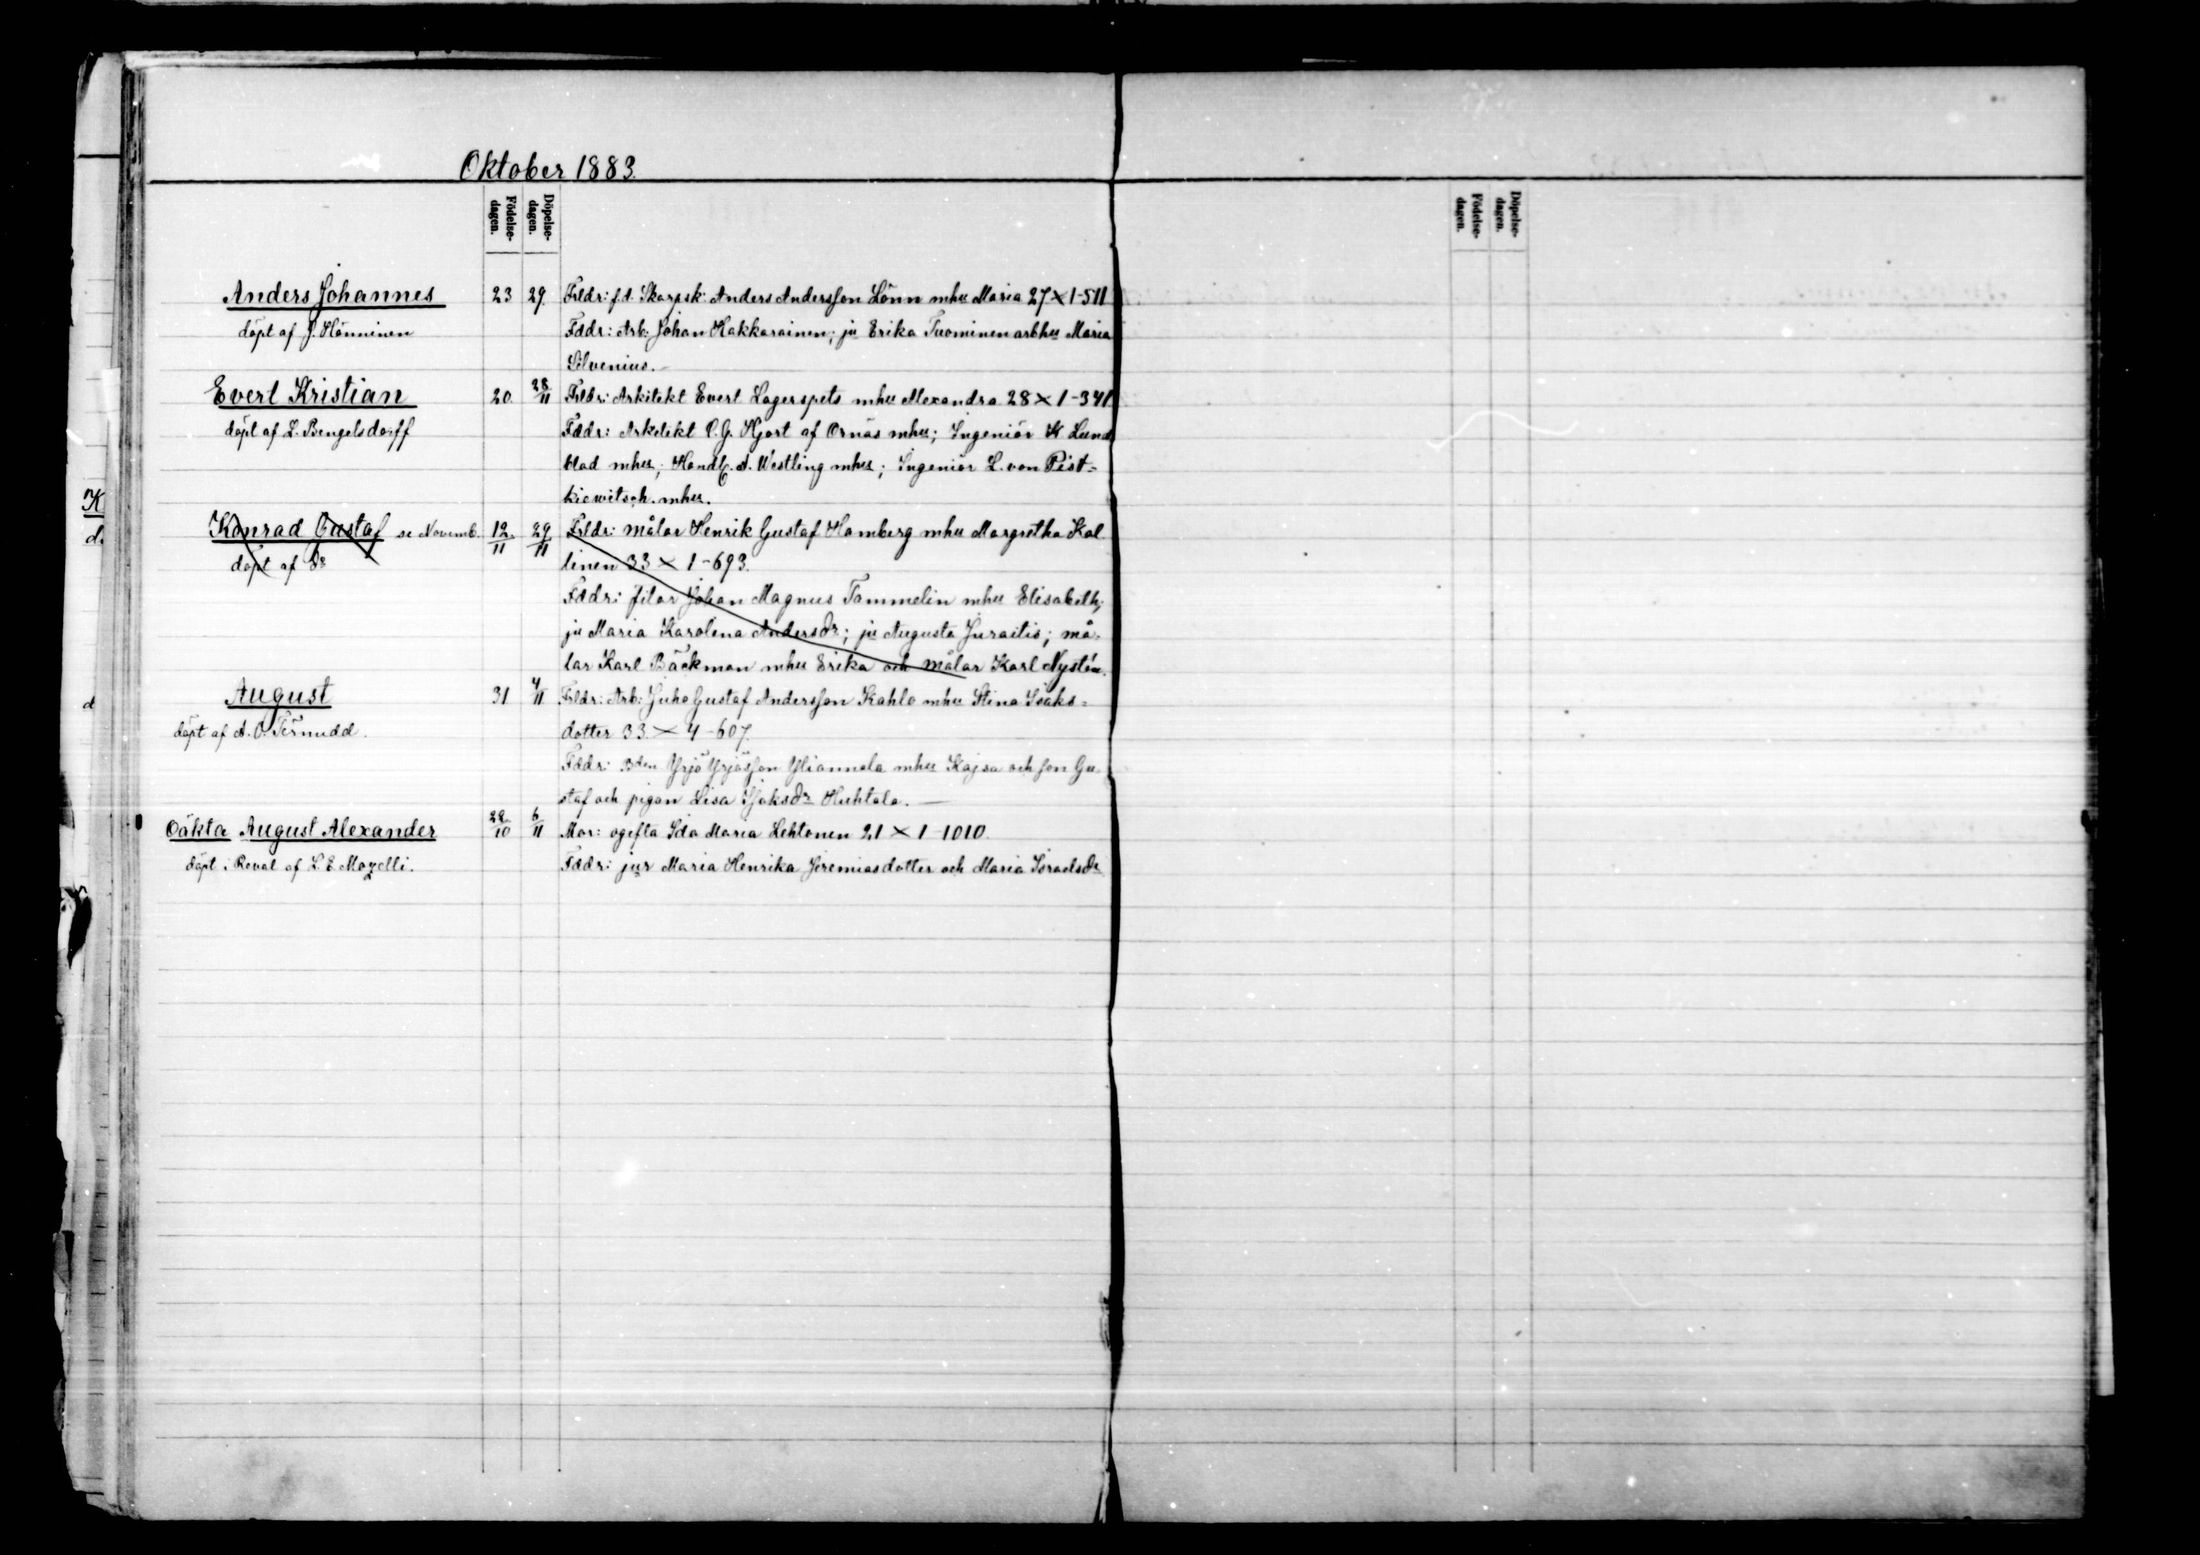 Oktober 1883.
Födelse-dagen. Döpelse-dagen.
Födelse-dagen. Döpelse-dagen.
Anders Johannes 23 29. Frldr: f.d. Skarpsk: Anders Andersson Lönn mhu Maria 27 × 1-511
döpt af J. Hänninen Fddr: Arb: Johan Hakkarainen; ju Erika Tuominen arbhu Maria
Silvenius.-
Evert Kristian 20 28/11 Frldr: Arkitekt Evert Lagerspets mhu Alexandra 28 × 1-341
döpt af L. Bengelsdorff Fddr: Arkitekt P.G. Hjort af Ornäs mhu; Ingeniör K Lund
blad mhu; Handl. A. Westling mhu; Ingeniör L. von Pist=
kiewitsch mhu.
Konrad Gustaf se Novemb. 12/11 29/11 Frldr: målar Henrik Gustaf Hamberg mhu Margretha Kal
döpt af Do linen 33 × 1-693.
Fddr: filar Johan Magnus Tammelin mhu Elisabeth;
ju Maria Karolina Andersdr; ju Augusta Juraitis; må-
lar Karl Bäckman mhu Erika och målar Karl Nystén.
August 31 4/11 Frldr: Arb: Juho Gustaf Andersson Kahlo mhu Stina Isaks=
döpt af A. O. Törnudd. dotter 33. × 4-607.
Fddr: Bden Yrjö Yrjösson Yliannala mhu Kajsa och son Gu-
staf och pigan Lisa Isaksdr Huhtala. —
Oäkta August Alexander 28/10 6/11 Mor: ogifta Ida Maria Lehtonen 21 × 1-1010.
döpt i Reval af L. E. Mozelli. Fddr: jur Maria Henrika Jeremiasdotter och Maria Israelsdr